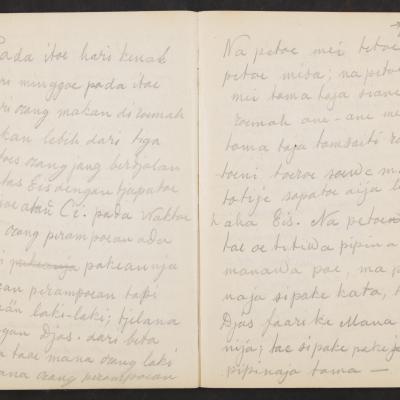 Pada itoe hari kenak
ri minggoe pada itoe
ri orang makan di roemah
kan lebih dari tiga
toes orang jang berdjalan
tas Eis dengan tjapatoe
oe atau Ce. pada waktoe
orang pirampoean ada
pakeannja
ean pirampoean tapi
laki-laki; tjelana
gan Djas. dari bita
taoe mana orang laki
ana orang pirampoean
Na petoe mei
petoe misa; na petoe
mei toma taja
roemah ane-ane me
toma taja tomsaiti
toeni, toeroe soewe m
totije sapatoe aija l
aha Eis. Na petoe
tae oe titiwa pipina
manawa poe, ma p
naja sipake kata, t
Djas faarike Mana
nija; tae sipake pake
pipinaja toma —